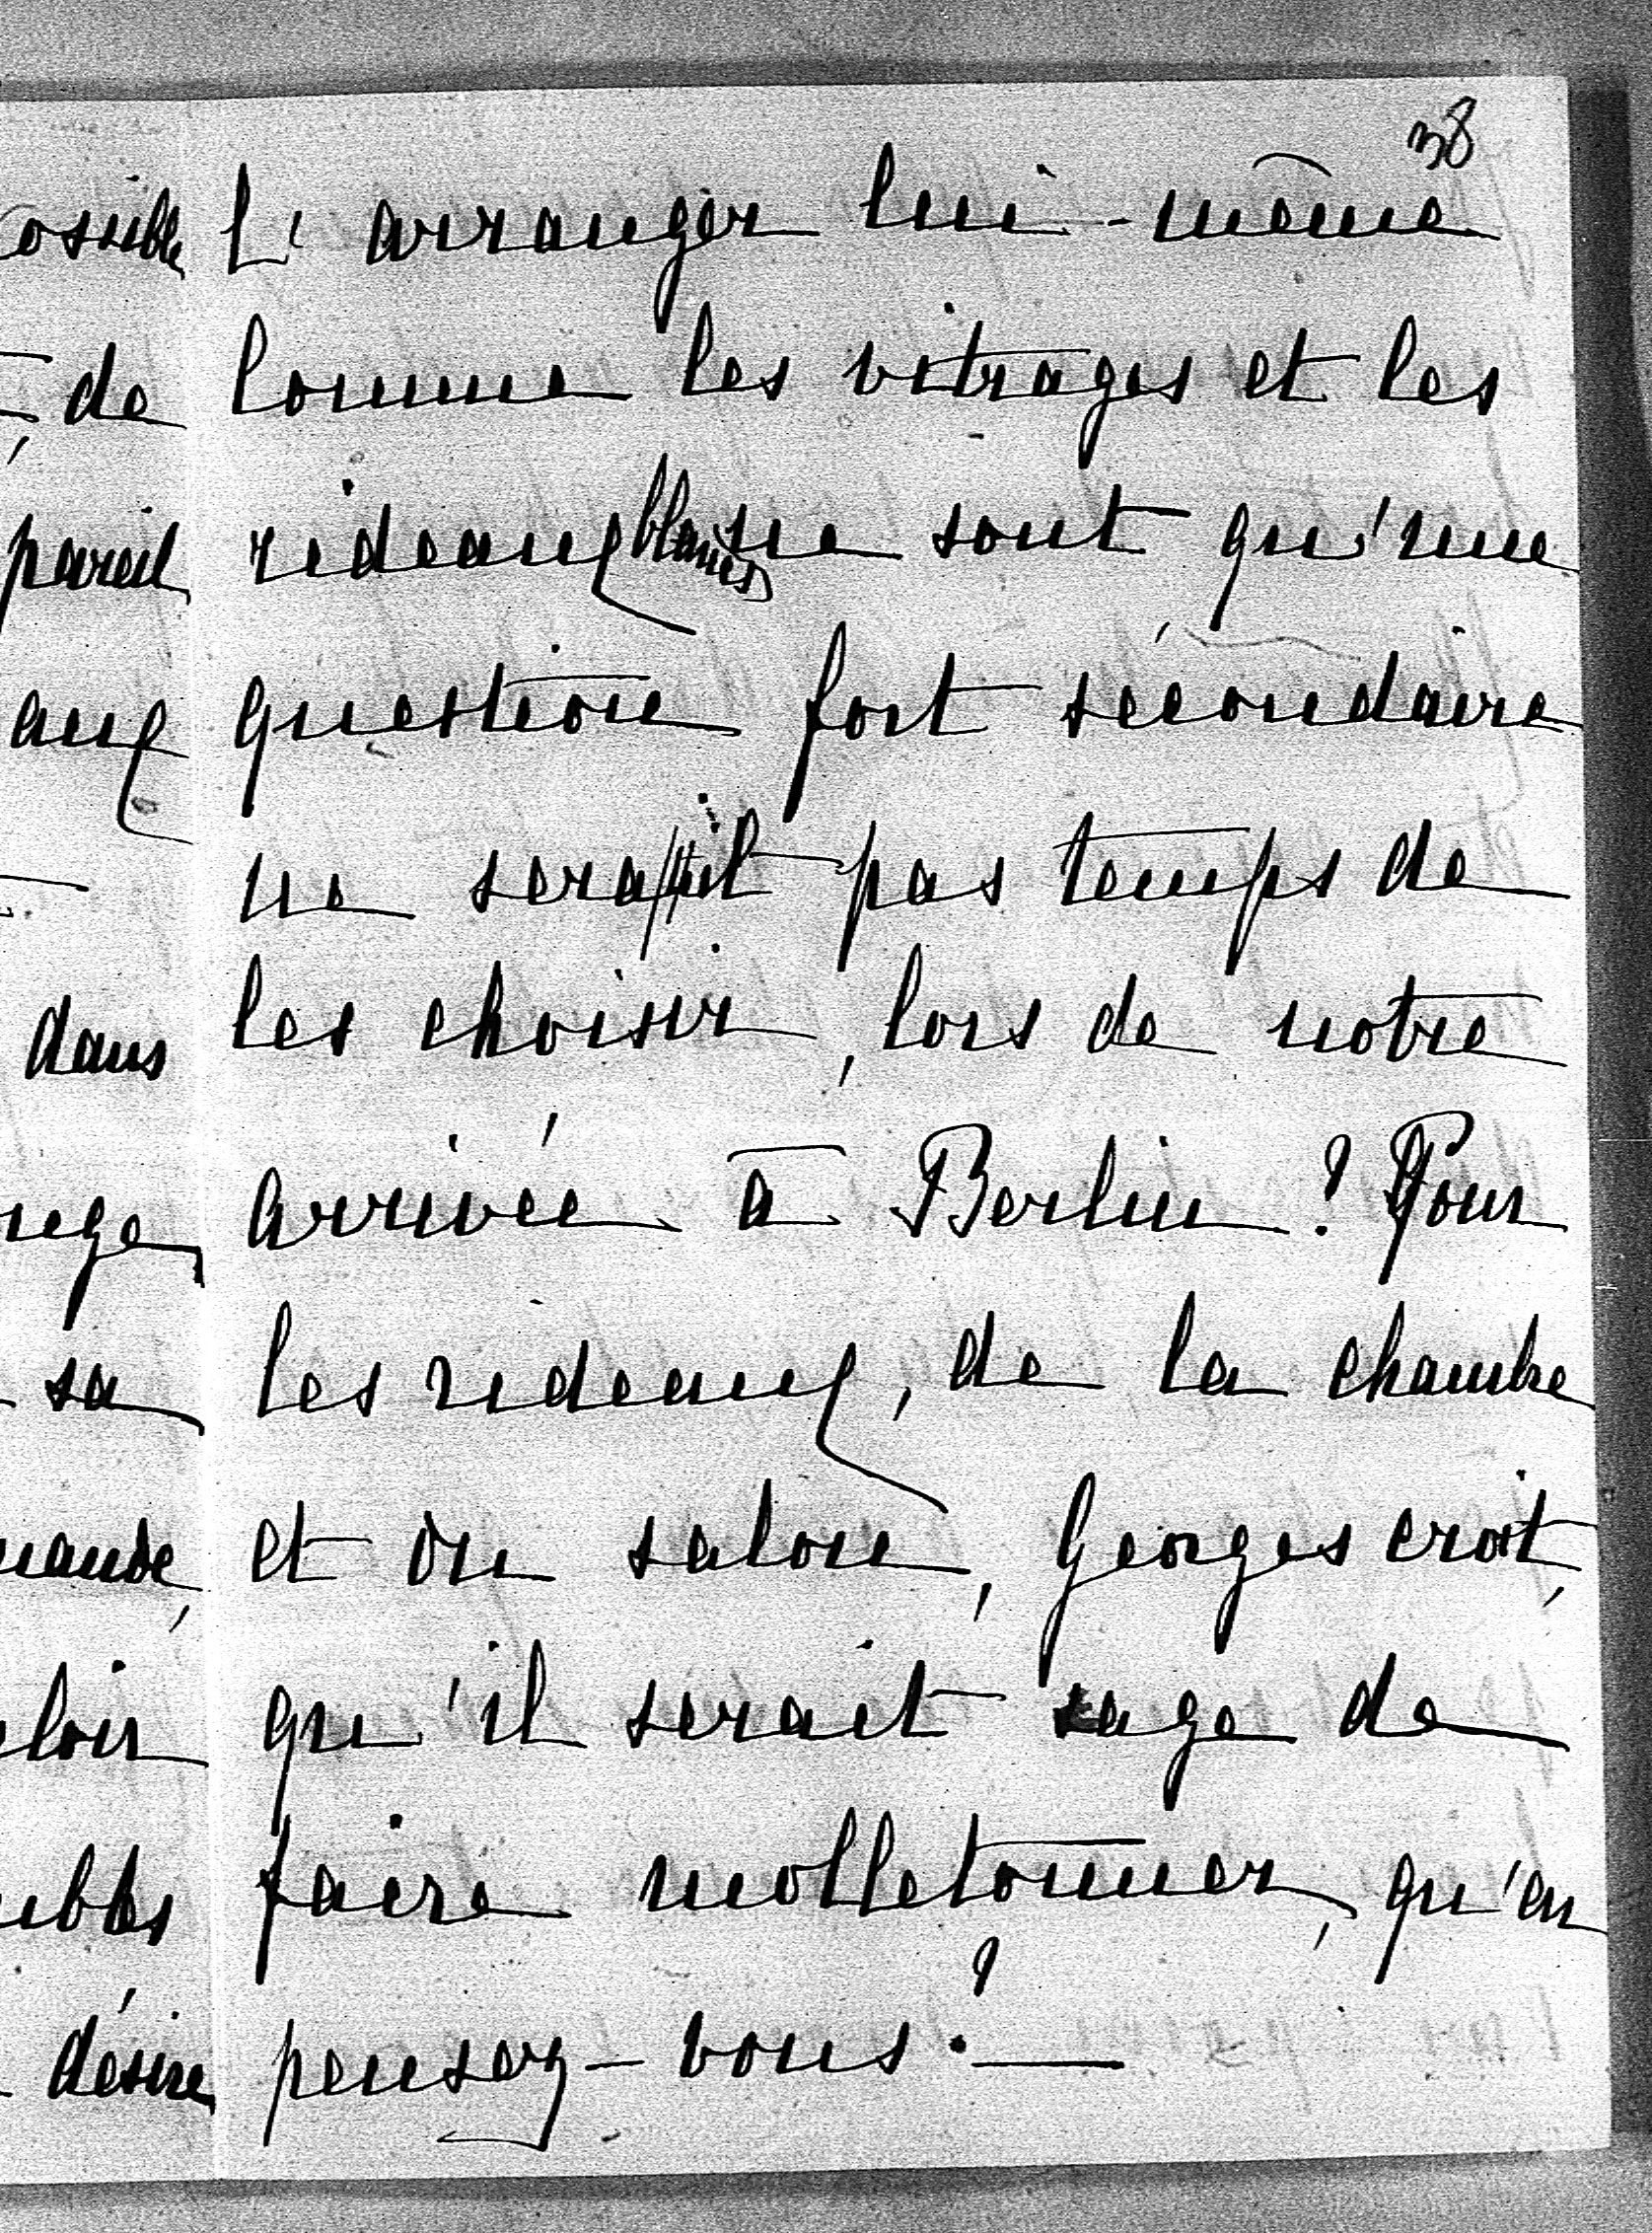 38
ossible l'arranger lui-même
de Comme les vitrages et les
pareil rideaux blancs ne sont qu'une
aux question fort sécondaire
ne sera/t/il pas temps de
dans les choisir, lors de notre
arrivée à Berlin? Pour
sa les rideaux, de la chambre
et du salon, Georges croit,
loir qu'il serait sage de
faire molletonner, qu'en
désire pensez-vous?—